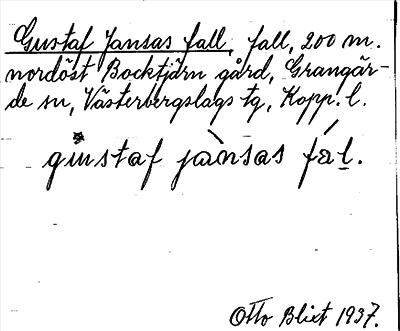 Gustaf Jansas fall, fall, 200 m.
nordöst Bocktjärn gård, Grangär-
de sn, Västerbergslags tg, Kopp. l.
gustaf jànsas fál.
Otto Blixt 1937.